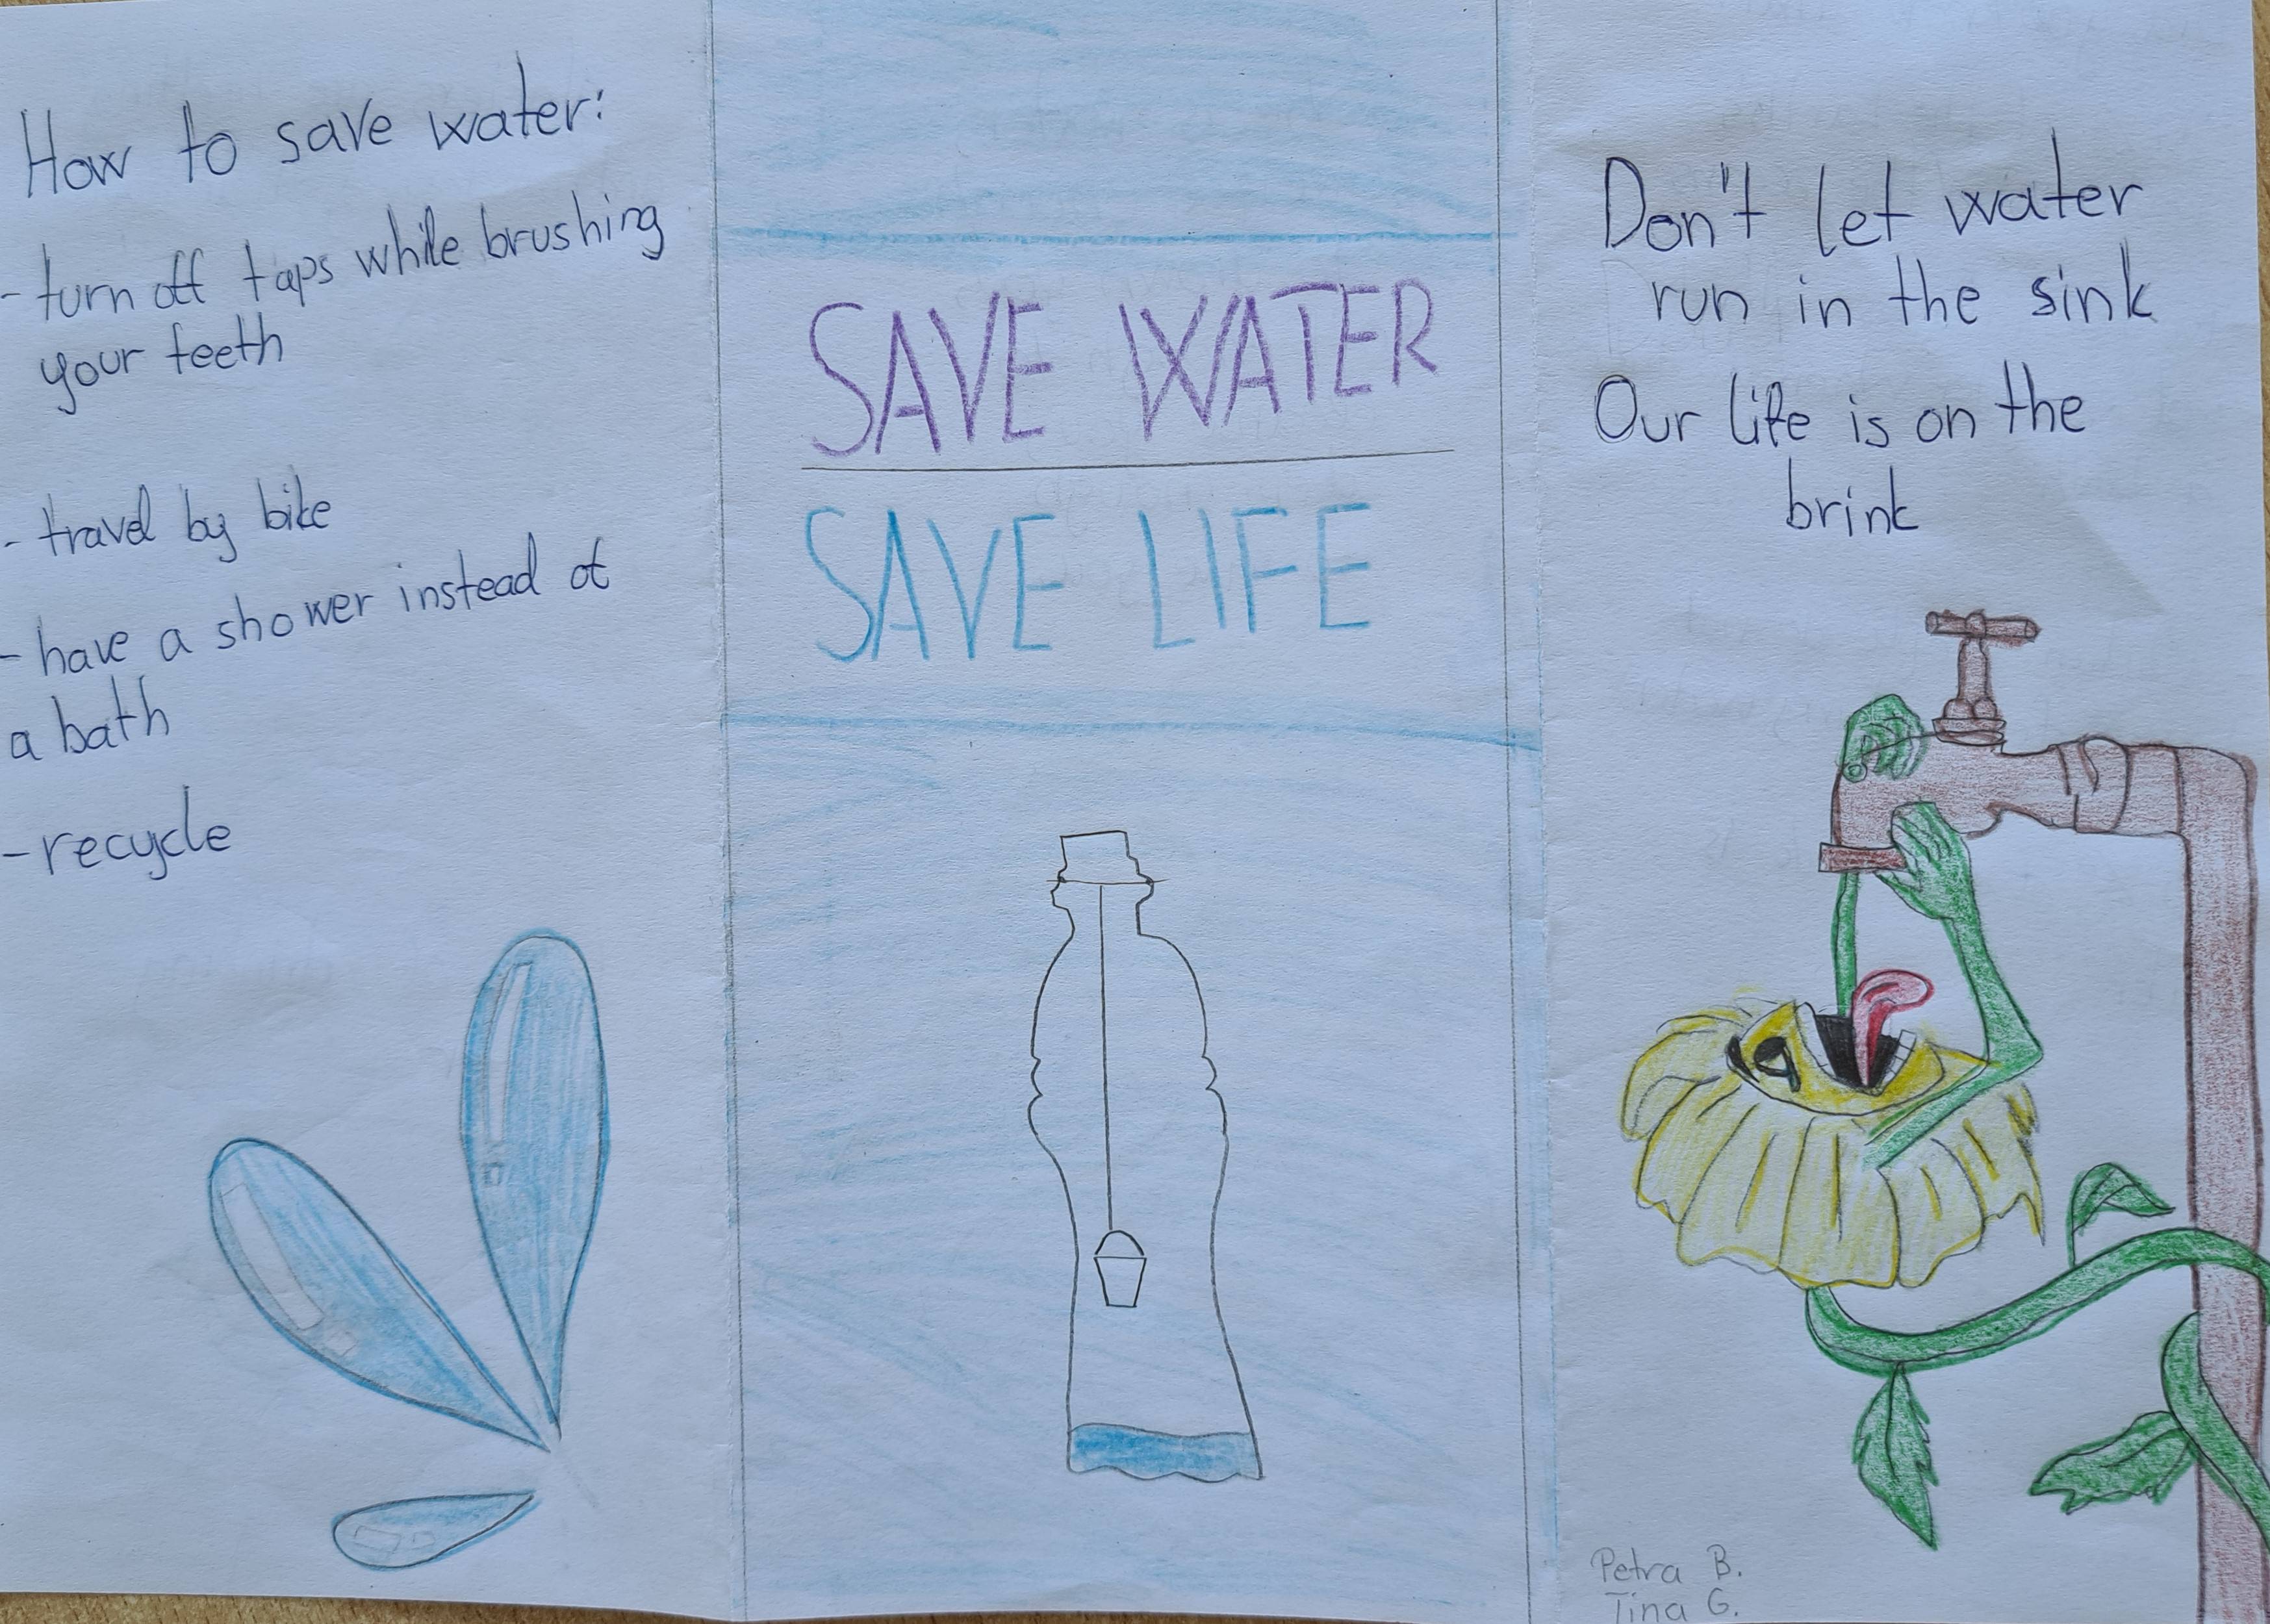 How to save water:
- turn off taps while brushing
your teeth
- travel by bike
- have a shower instead of
a bath
- recycle
SAVE WATER
SAVE LIFE
Don't let water
run in the sink
Our life is on the
brink
Petra B.
Tina G.